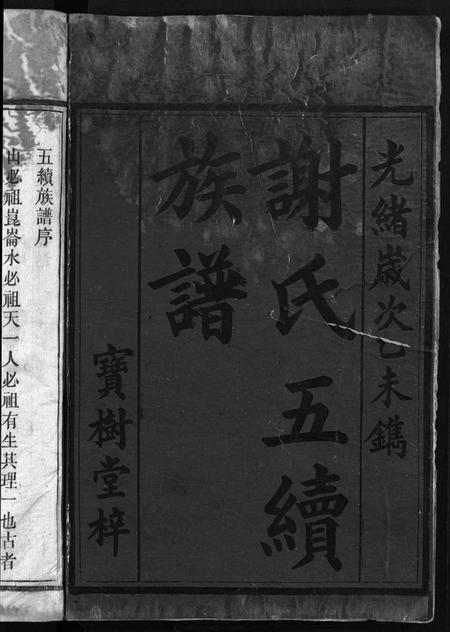 光緒歲次乙未鐫
謝氏五續
族譜
寶樹堂梓
五續族譜序
山必祖崑崙水必祖天一人必祖有生其理一也古者